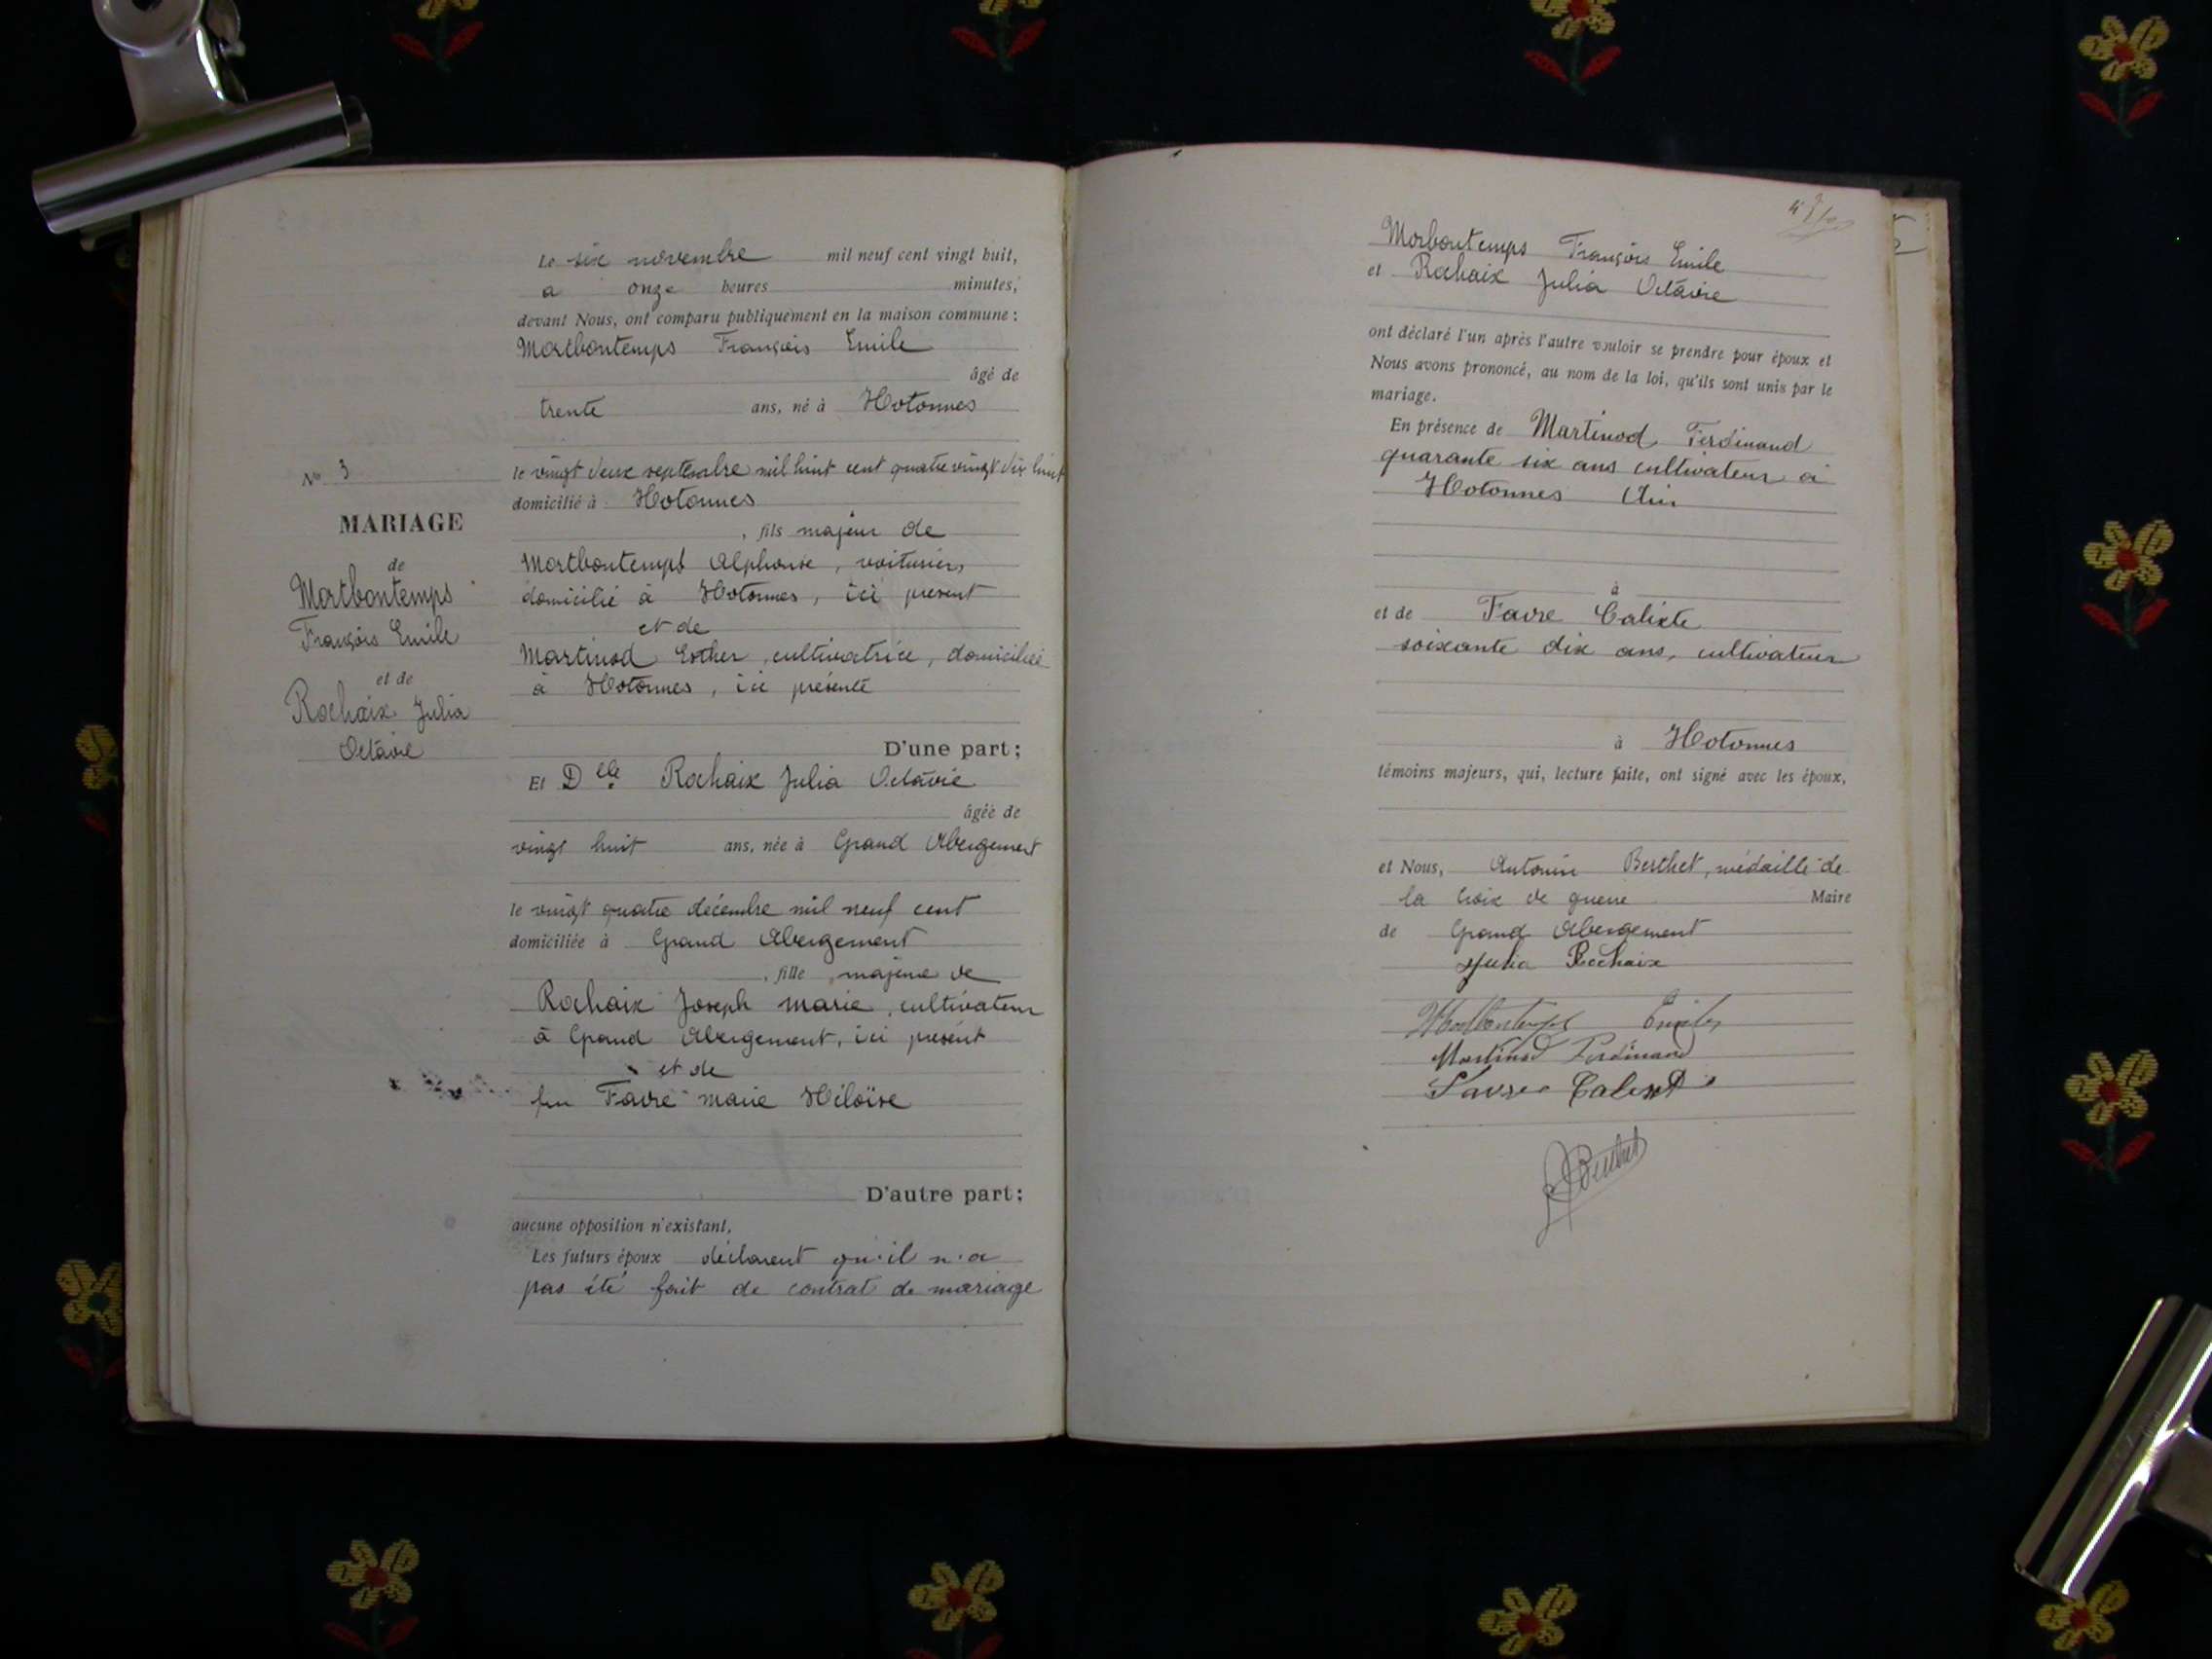 Le six novembre mil neuf cent vingt huit,
a onze heures minutes,
devant Nous, ont comparu publiquement en la maison commune :
Mortbontemps François Emile
âgé de
trente ans, né à Hotonnes
le vingt deux septembre mil huit cent quatre vingt dix huit
domicilié à Hotonnes
, fils majeur de
Mortbontemps Alphonse, voiturier,
domicilié à Hotonnes, ici présent
et de
Martinod Esther, cultivatrice, domiciliée
à Hotonnes, ici présente
D'une part ;
Et Dlle Rochaix Julia Octavie
âgée de
vingt huit ans, née à Grand Abergement
le vingt quatre décembre mil neuf cent
domiciliée à Grand Abergement
, fille majeure de
Rochaix Joseph Marie, cultivateur
à Grand Abergement, ici présent
et de
feu Favre Marie Héloïse
D'autre part :
aucune opposition n'existant,
Les futurs époux déclarent qu'il n'a
pas été fait de contrat de mariage
No 3
MARIAGE
de
Mortbontemps
François Emile
et de
Rochaix Julia
Octavie
Morbontemps François Emile
et Rochaix Julia Octavie
ont déclaré l'un après l'autre vouloir se prendre pour époux et
Nous avons prononcé, au nom de la loi, qu'ils sont unis par le
mariage.
En présence de Martinod Ferdinand
quarante six ans cultivateur à
Hotonnes Ain
à
et de Favre Calixte
soixante dix ans, cultivateur
à Hotonnes
témoins majeurs, qui, lecture faite, ont signé avec les époux,
et Nous, Antonin Berthet, médaillé de
la Croix de guerre Maire
de Grand Abergement
Julia Rochaix
Mortbontemps Emile
Martinod Ferdinand
Favre Calixte
Berthet